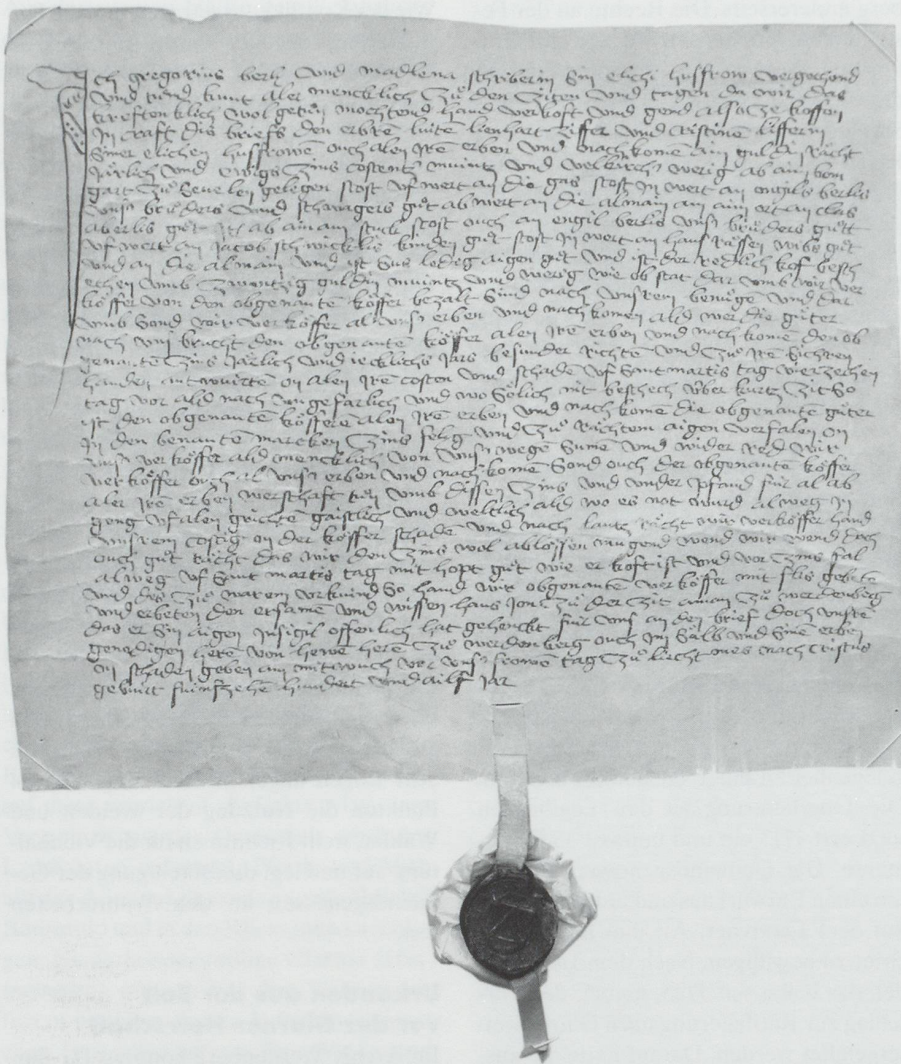 Ich gregorius berli Vnd madlena schriberin Sin elichi husfrow vergechend
Vnd tund kunt aler mencklich Zů den Ziten Vnd tagen da wir das
kreftenklich wol getůn mochtend hand verkoft Vnd gend also ze koffen
In craft dis briefs den erbrē lüte lienhart Ziffer Vnd cristine lifferin
Siner elichen husfrowē ouch alen Jrē erben Vnd nachkomē ain guldin Rächt
järlich Vnd ewigs Zins costentz müntz Vnd Velkirch werig ab aim bom
gart Zů Seuelen gelegen stost Vfwert an die gas stost Jn wert an engilis berlis
Vnsr brůders Vnd schwagers gůt abwert an die almain am ain ort an clas
aberlis gůt Jtē ab ainam stuck stost ouch an engil berlis Vnsr brůders gůtt
Vfwert an Jacob schwicklis kinden gůt stost Jn wert an hans Rüssen wibs gůt
Vnd an die almain Vnd ist Sus ledeg aigen gůt Vnd ist der Redlich kof besch
echen Vmb Zwantzig guldin müntz Vnd werig wie ob stat dar Vmb wir ver
köffer Von den obgenantē köffer bezalt Sind nach Vnsrem benügē Vnd dar
Vmb Sond wir verköffer al Vnsr erben Vnd nach komen ald wer die güter
nach Vns brucht den obgenantē köffer alen Jrē erben Vnd nach komē den ob
genantē Zins Järlich Vnd iecklichs Jars besunder Richtē Vnd Zů Jrē Sichren
handen antwürtē on alen Jrē costen Vnd schadē Vf Sant martis tag Vierzechen
tag Vor ald nach Vngefarlich Vnd wo Sölich nit beschech Vber kurtz Zit So
ist den obgenantē köfferē alen Jrē erben Vnd nach komē die obgenantē güter
Jn den benantē marcken Zins felig Vnd Zů Rächtem aigen Verfalen on
Vnsr verköffer ald mencklich Von Vnsr wegē Sumē Vnd wider Red wir
verköffer Vnd al Vnsr erben Vnd nach komē Sond ouch der obgenantē köffer
aler Jrē erben werschaft tůn Vmb dissen Zins Vnd Vnder pfand für al ab
geng Vf alen grichtē gaistlich Vnd weltlich ald wo es not wurd alweg Jn
Vnsrem costig on der köffer schadē Vnd nach lantz Rächt wir verköffer hand
ouch gůt Rächt das wir den Zins wol ablössen mugend wend wir wend doch
alweg Vf Sant martis tag mit hopt gůt wie er koft ist Vnd Vor Zins fal
Vnd des Zů warem Vrkünd So hand wir obgenantē verköffer mit flis gebetē
Vnd erbeten den ersamē Vnd wissen hans Jonli Zů der Zit aman Zů werdenberg
das er Sin aigen Jnsigil offenlich hat gehenckt für Vns an den brief doch Vnsrē
genedigen herē Von hewē herē Zů werdenberg ouch Jm Sälb Vnd Sinē erben
on schaden geben am mitwuch Vor Vnsr frowē tag Zů liecht mes nach cristus
geburt fünfzehē hundert Vnd ailf Jar